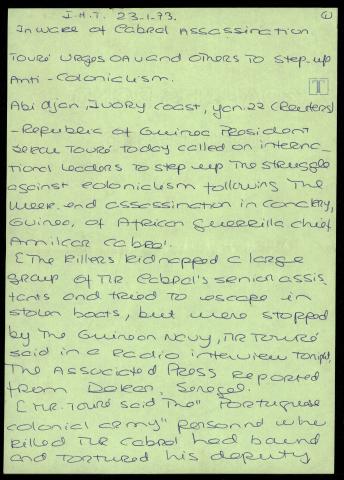 I.H.T. 23-1-73. 1
In wake of Cabral Assassination
Touré urges OAU and others to step-up
Anti-Colonialism.
T
Abidjan, Ivory Coast, yan. 22 (Reuters)
- Republic of Guinea President
Sekou Touré today called on interna-
tional leaders to step up the struggle
against colonialism following the
week-end assassination in Conakry,
Guinea, of African guerrilla chief
Amilcar Cabral.
The killers kidnapped a large
group of Mr Cabral's senior assis
tants and tried to escape in
stolen boats, but were stopped
by the Guinean Navy, Mr Touré
said in a radio interview tonight,
The Associated Press reported
from Dakar, Senegal.
Mr. Touré said the "Portuguese
colonial army" personnel who
killed Mr Cabral had bound
and tortured his deputy